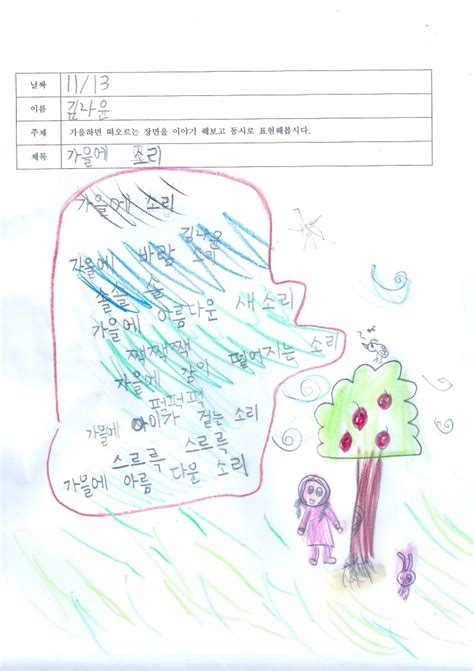 날짜 11/13
이름 김나윤
주제 가을하면 떠오르는 장면을 이야기 해보고 동시로 표현해봅시다.
제목 가을에 소리
가을에 소리
김나윤
가을에 바람 소리
솔솔 솔
가을에 아름다운 새소리
짹짹짹
가을에 감이 떨어지는 소리
퍽퍽퍽
가을에 아이가 걷는 소리
스르륵 스르륵
가을에 아름 다운 소리